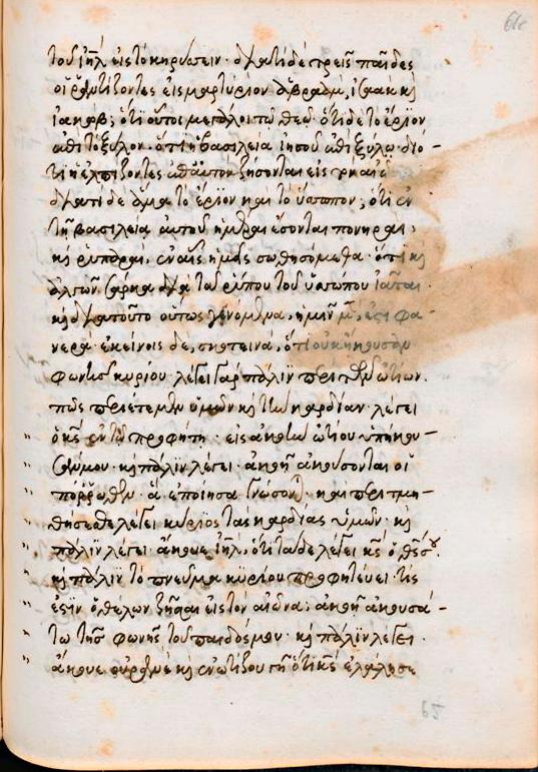 τοῦ ἰηλ̄ εἰς τὸ κηρύσσειν· διατί δὲ τρεῖς παῖδες
οἱ ῥαντίζοντες εἰς μαρτύριον ἀβραὰμ, ἰσαὰκ κὶ
ἰακώβ; ὅτι οὗτοι μεγάλοι τῷ θεῷ· ὅτι δὲ τὸ ἔριον
ἐπὶ τὸ ξύλον· ὅτι ἡ βασιλεία ἰησοῦ ἐπὶ ξύλῳ· διό-
τι οἱ ἐλπίζοντες ἐπ' αὐτὸν ζήσονται εἰς τὸν
διατί δὲ ἅμα τὸ ἔριον καὶ τὸ ὕσωπον; ὅτι ἐν
τῇ βασιλεία αὐτοῦ ἡμέραι ἔσονται πονηραὶ,
κὶ ῥυπαραὶ, ἐν αἷς ἡμεῖς σωθησόμεθα· ὅτι κὶ
ἀλγῶν σάρκα διὰ τοῦ ῥύπου τοῦ ὑσώπου ἰᾶται·
κὶ διὰ τοῦτο οὕτως γενόμενα, ἡμῖν μ̄, ἐστι φα-
νερά· ἐκείνοις δὲ, σκοτεινά, ὅτι οὐκ ἤκουσαν
φωνῆς κυρίου· λέγει γὰρ πάλιν περὶ τῶν ὠτίων.
πῶς περιέτεμεν ὑμῶν κὶ τὴν καρδίαν· λέγει
ὁ κς̄ ἐν τῷ προφήτῃ· εἰς ἀκοὴν ὠτίου ὑπήκου-
σάν μου· κὶ πάλιν λέγει· ἀκοῇ ἀκούσονται οἱ
πόρρωθεν· ἃ ἐποίησα γνώσονται· καὶ περιτμη-
θήσεσθε λέγει κύριος τὰς καρδίας ὑμῶν· κὶ
πάλιν λέγει· ἄκουε ἰηλ̄, ὅτι τάδε λέγει κς̄ ὁ θς̄ σου·
κὶ πάλιν τὸ πνεῦμα κυρίου προφητεύει· τίς
ἐστιν ὁ θέλων ζῆσαι εἰς τὸν αἰῶνα; ἀκοῇ ἀκουσά-
τω τῆς φωνῆς τοῦ παιδός μου· κὶ πάλιν λέγει·
ἄκουε οὐρανὲ κὶ ἐνωτίζου γῆ ὅτι κς̄ ἐλάλησε
65